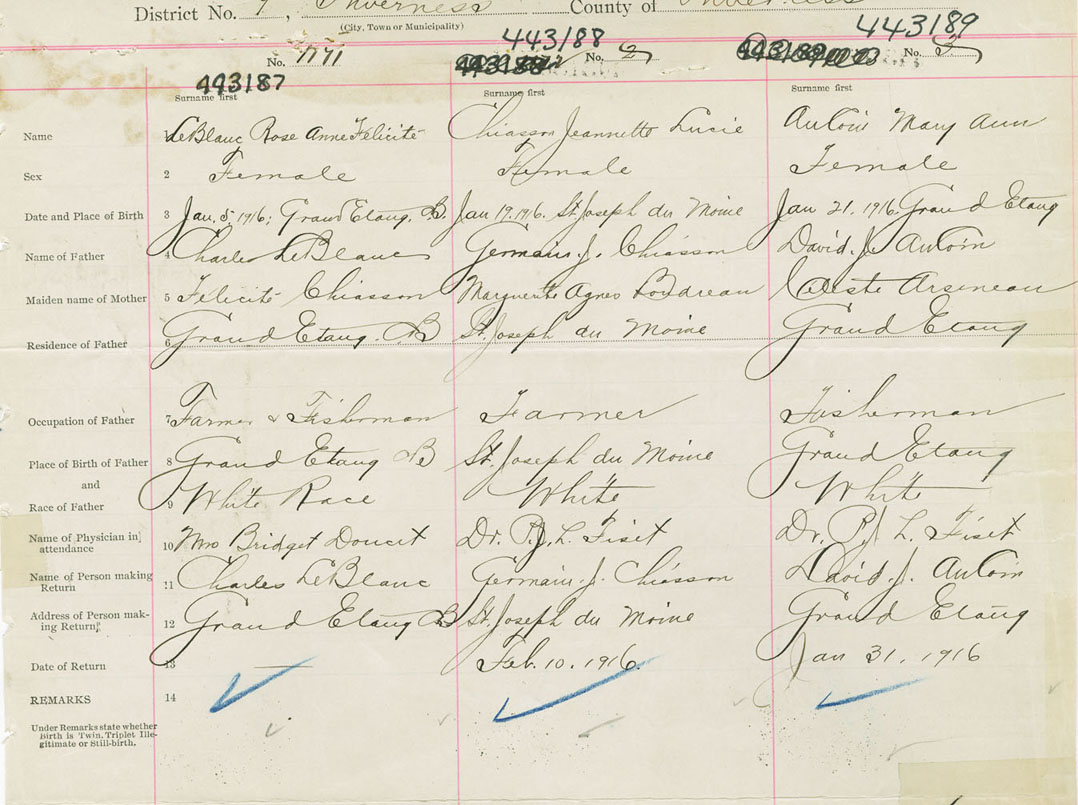 District No. 7, Inverness County of Inverness
(City, Town or Municipality)
443188 443189
No. No. 2 No. 3
443187
Surname first Surname first Surname first
Name 1 LeBlanc Rose Anne Felicité Chiasson Jeannette Lucie AuCoin Mary Ann
Sex 2 Female Female Female
Date and Place of Birth 3 Jan. 5 1916; Grand Etang. B. Jan 19. 1916. St. Joseph du Moine Jan 21. 1916. Grand Etang
Name of Father 4 Charles LeBlanc Germain. J. Chiasson David. J. AuCoin
Maiden name of Mother 5 Felicité Chiasson Marguerite Agnes Boudreau Celeste Arseneau
Residence of Father 6 Grand Etang. B St. Joseph du Moine Grand Etang
Occupation of Father 7 Farmer & Fisherman Farmer Fisherman
Place of Birth of Father 8 Grand Etang B St. Joseph du Moine Grand Etang
and
Race of Father 9 White Race White White
Name of Physician in attendance 10 Mrs Bridget Doucet Dr. P.J.L. Fiset Dr. P.J.L. Fiset
Name of Person making Return 11 Charles LeBlanc Germain. J. Chiasson David. J. AuCoin
Address of Person making Return 12 Grand Etang B St. Joseph du Moine Grand Etang
Date of Return 13 Feb. 10. 1916. Jan 31. 1916
REMARKS 14
Under Remarks state whether
Birth is Twin. Triplet Ille-
gitimate or Still-birth.